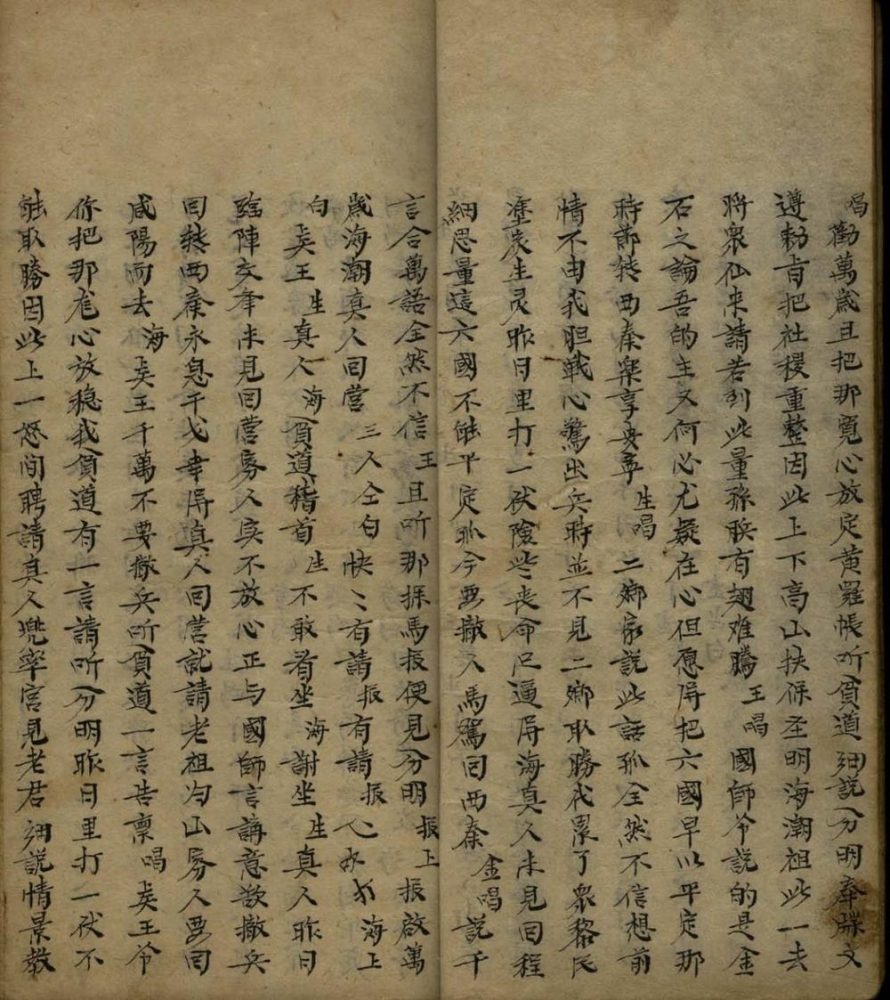 唱勸萬歲且把那寬心放定黃羅帳听貧道細說分明奉牒文
遵勅旨把社稷重整因此上下高山扶保圣明海潮祖此一去
將衆仙來請若到此量孫臏有翅难騰王唱國師爷說的是金
石之論吾的主又何必尤疑在心但愿得把六國早以平定那
時節轉西秦樂享安寧生唱二鄉家說此話孤全然不信想前
情不由我胆戰心驚出兵時並不見二鄉取勝代累了衆黎民
塗炭生灵昨日里打一伏險些丧命只逼得海真人未見回程
細思量這六國不能平定孤今要撤人馬駕回西秦金唱說千
言合萬語全然不信王且听那探馬振便見分明振上振啟萬
歲海潮真人回营三人仝白快〻有請振有請振海上
白矣王生真人海貧道稽首生不敢看坐海謝坐生真人昨日
臨陣交奉未見回营寡人实不放心正与國師言講意欲撤兵
回轉西秦永息干戈幸得真人回营就請老祖为山寡人要回
咸陽而去海矣王千萬不要撤兵听貧道一言告禀唱矣王爷
你把那龙心放穩我貧道有一言請听分明昨日里打一伏不
能取勝因此上一怒间聘請真人兜率宫見老君細說情景教